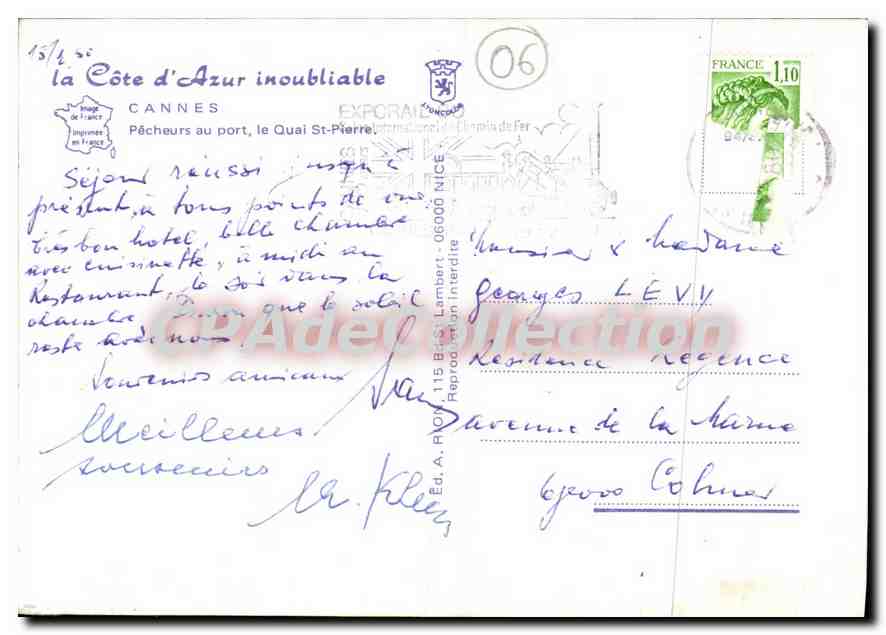 la Côte d'Azur inoubliable
CANNES
Pêcheurs au port, le Quai St-Pierre.
Image
de France
Imprimée
en France
LYONCOLOR
06
EXPORAIL
International de Chemin de Fer
CANNES
FRANCE 1,10
Séjour réussi jusqu'à
présent, à tous points de vue,
très bon hotel, belle chambre
avec cuisinette, à midi au
Restaurant, le soir dans la
chambre. que le soleil
reste avec nous.
Souvenirs amicaux
Meilleurs
souvenirs
Klein
Éd. A. RION, 115 Bd St Lambert - 06000 NICE
Reproduction interdite
Monsieur & Madame
Georges LÉVY
Résidence Régence
avenue de la Marne
68000 Colmar
CPAdeCollection